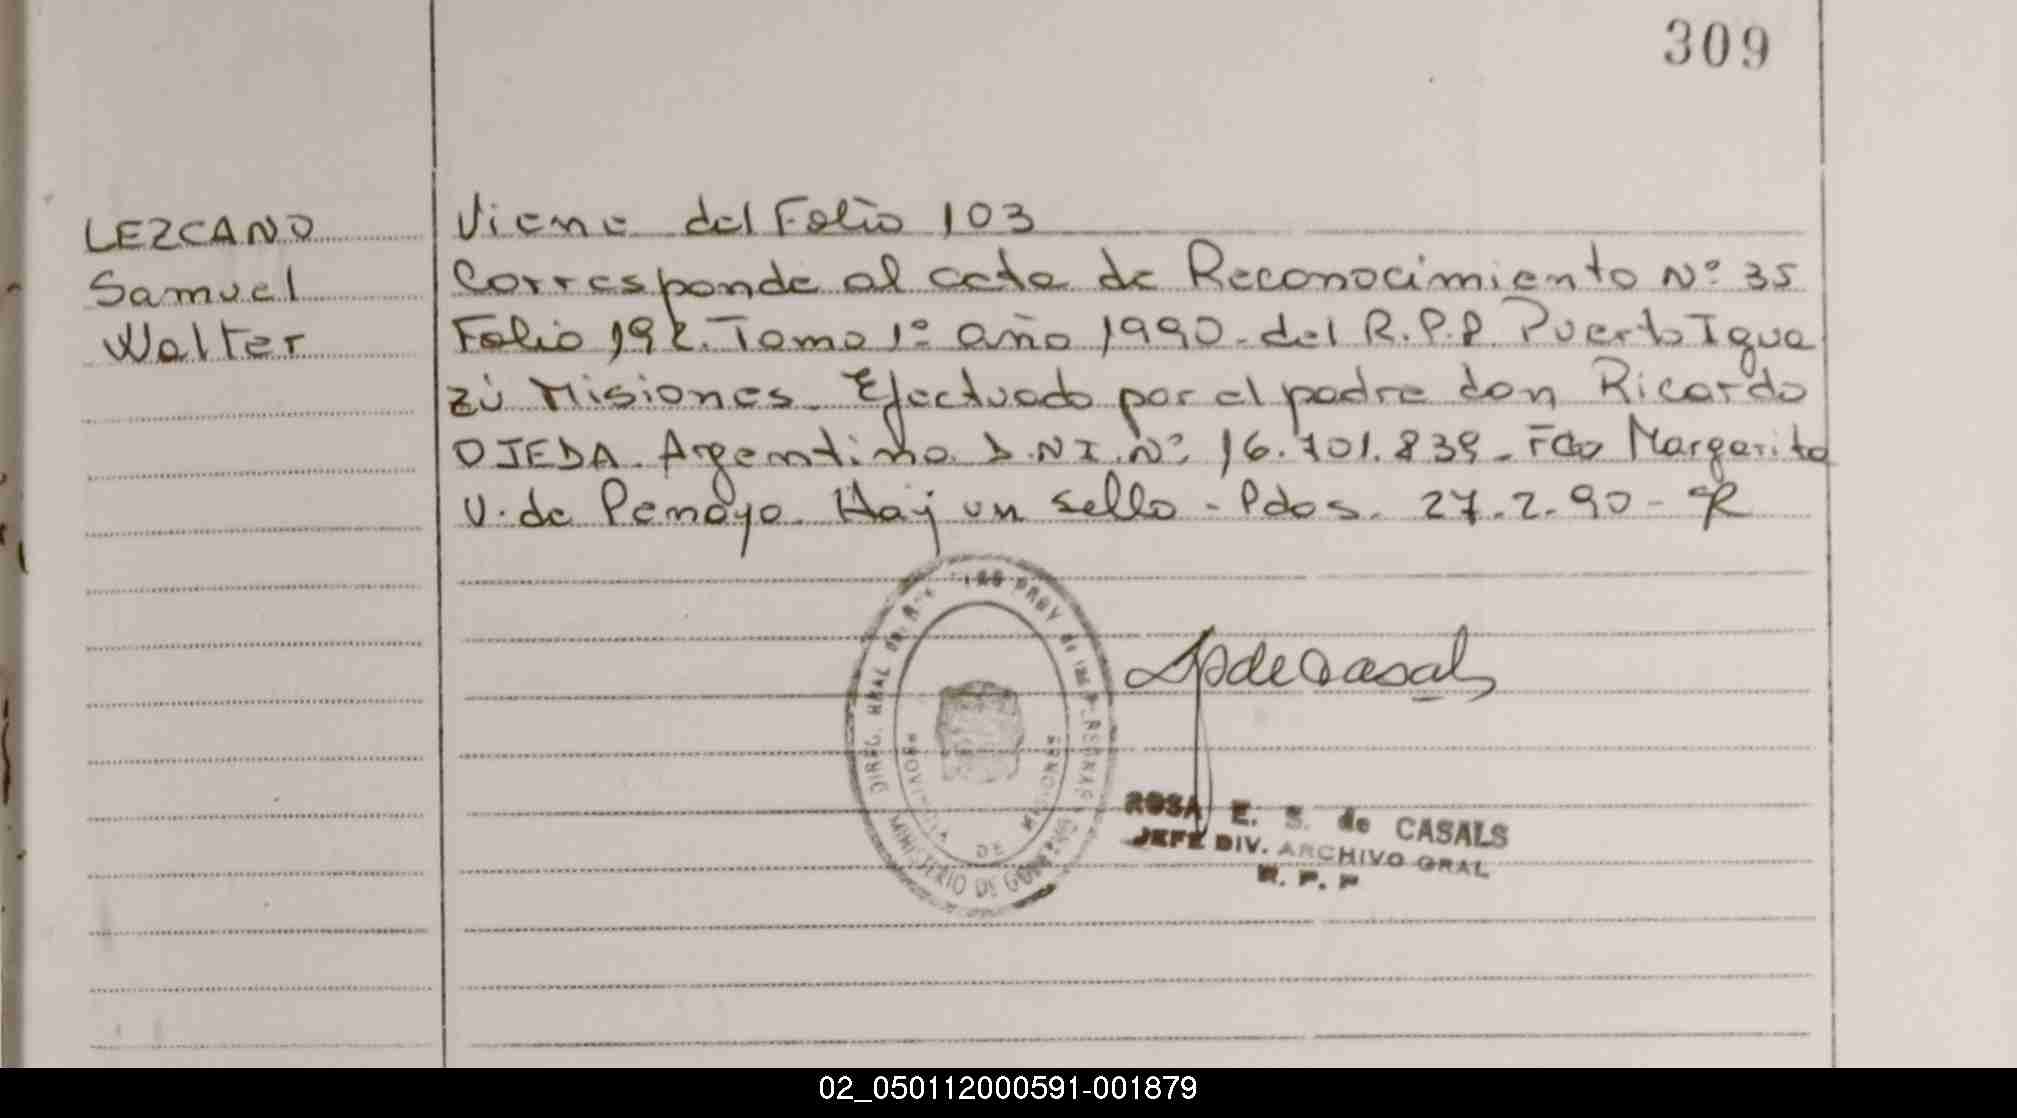 309
LEZCANO
Samuel
Walter
Viene del Folio 103
Corresponde al acta de Reconocimiento Nº 35
Folio 192. Tomo 1º año 1990. del R.P.P. Puerto Igua
zú Misiones. Efectuado por el padre don Ricardo
OJEDA. Argentino D.N.I. Nº 16.701.839. Fdo Margarita
V. de Penayo. Hay un sello - Pdas. 27.2.90 -
DIREC. GRAL de PROV de las PERSONAS
MINISTERIO DE GOBIERNO
PROVINCIA DE MISIONES
de Casals
ROSA E. S. de CASALS
JEFE DIV. ARCHIVO GRAL
R. P. P
02_050112000591-001879